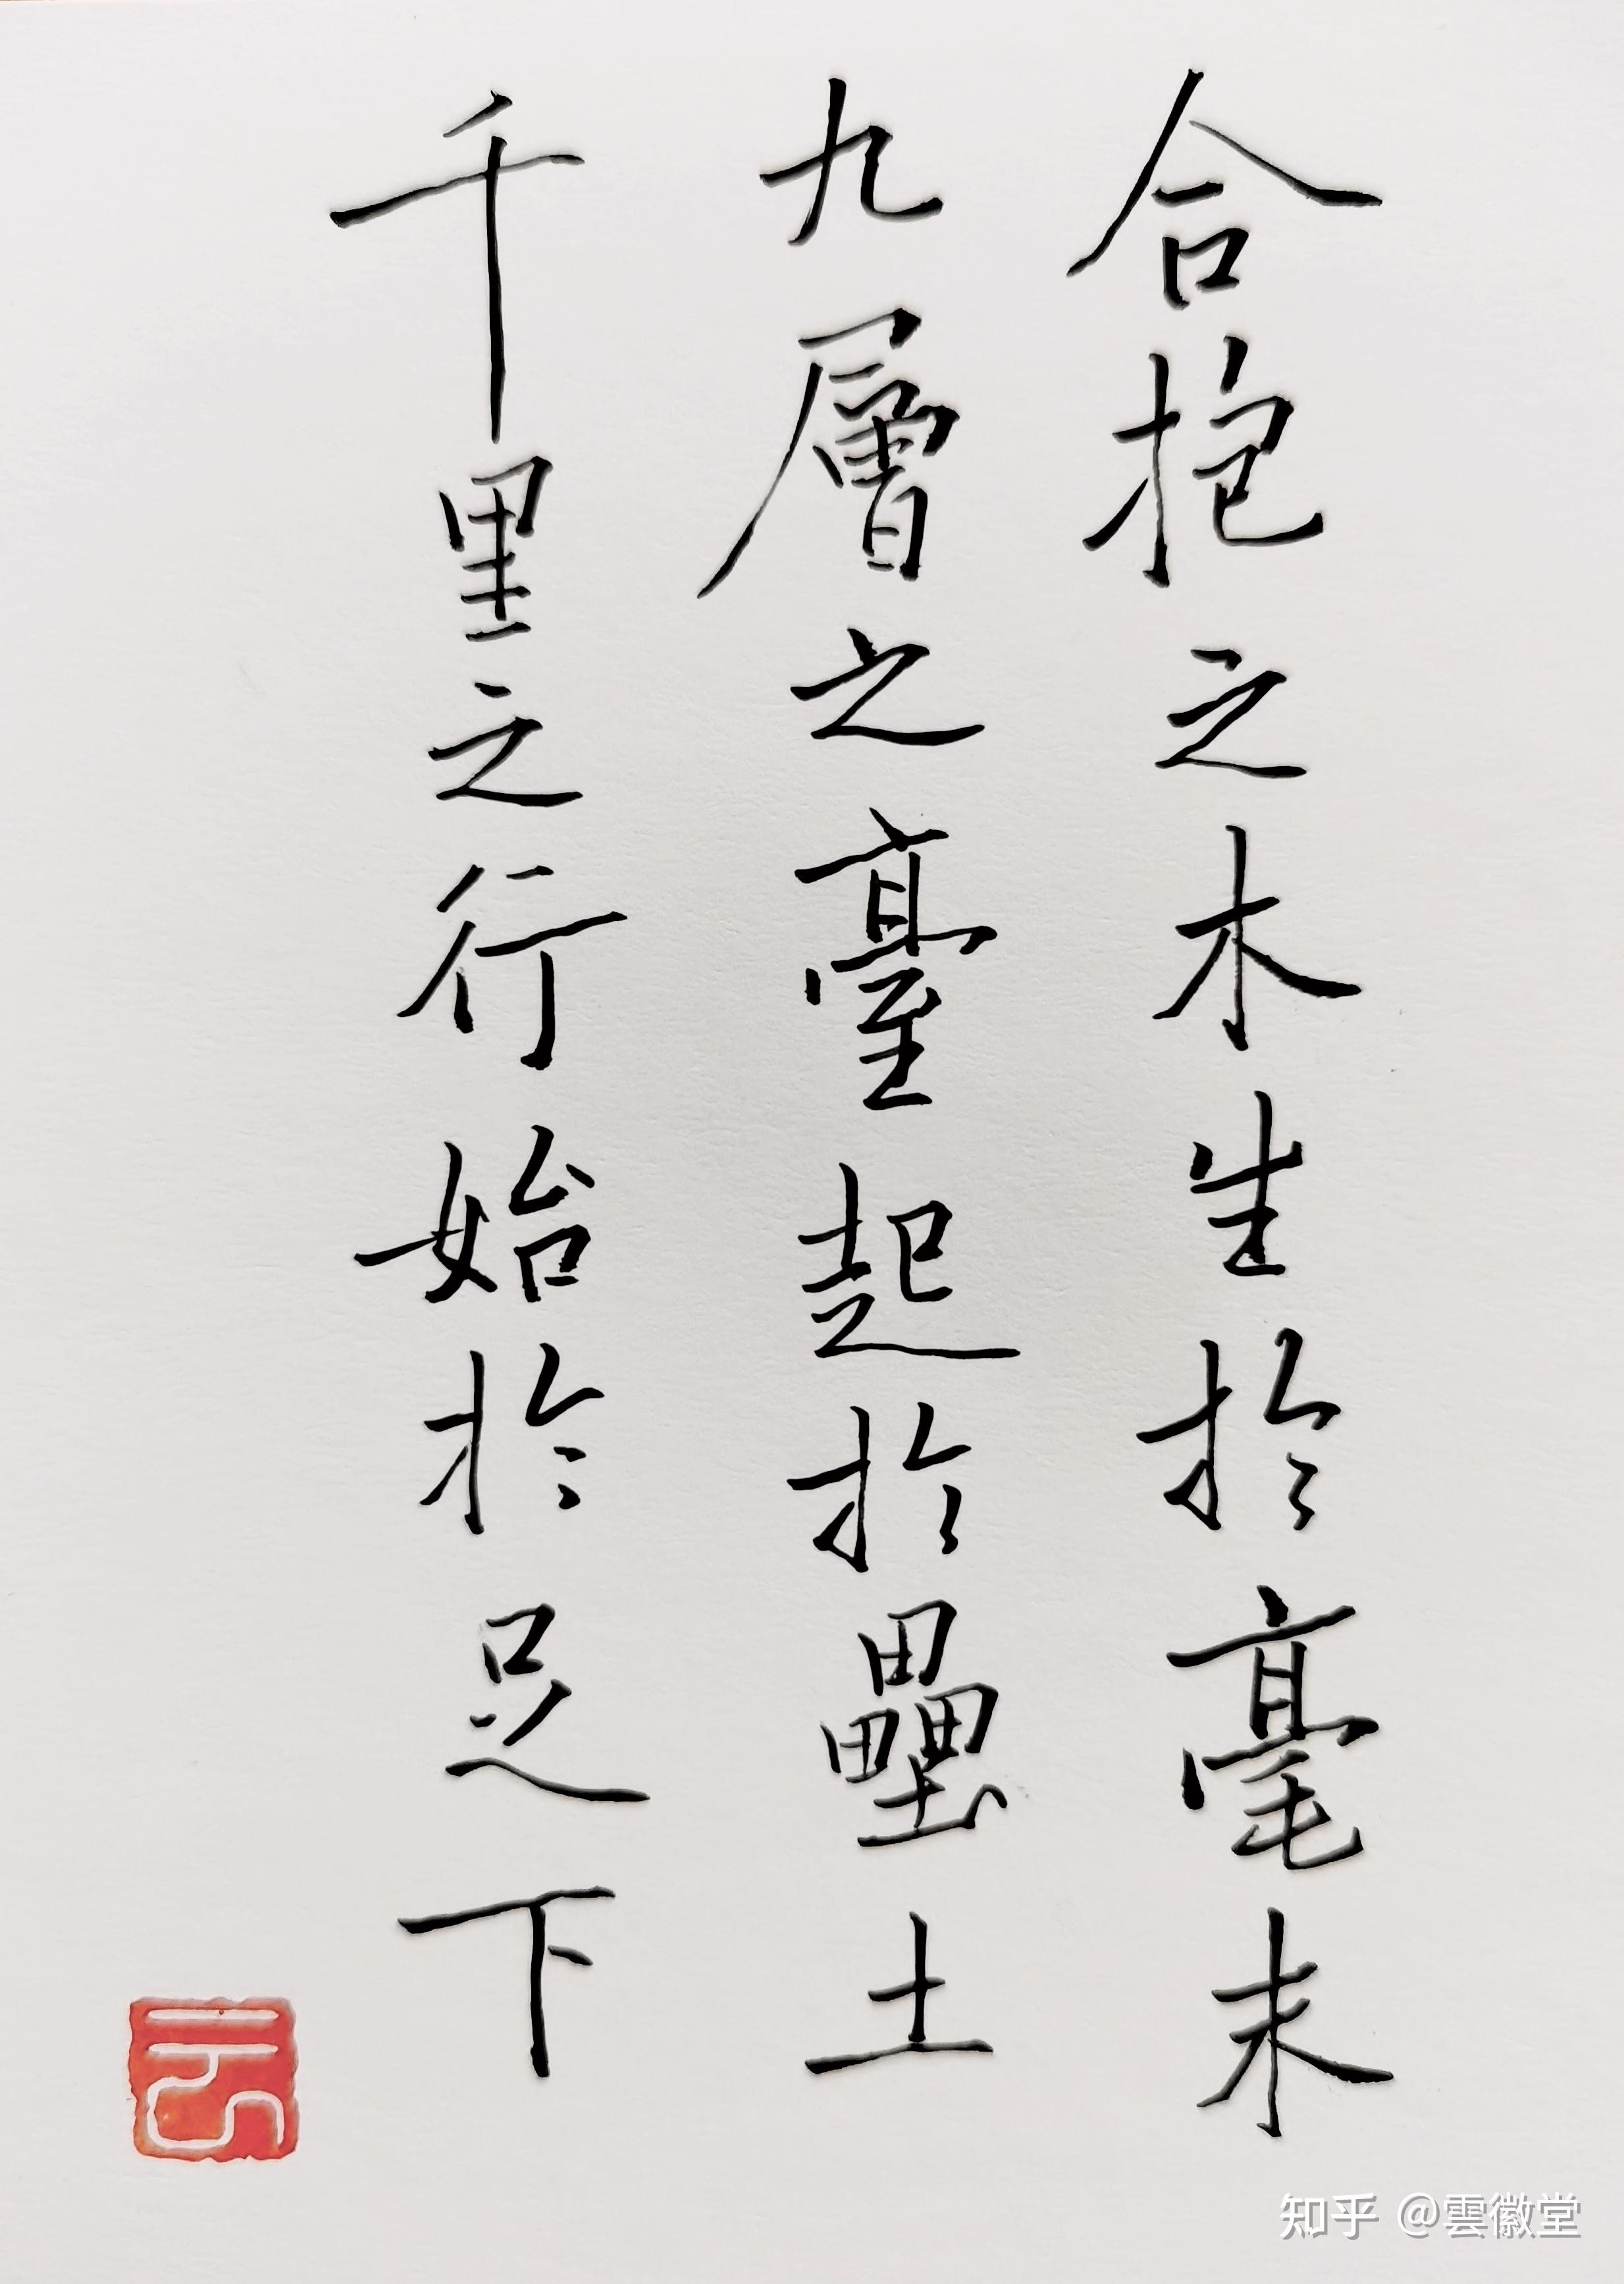 合抱之木生於毫末
九層之臺起於壘土
千里之行始於足下
云
知乎 @雲徽堂